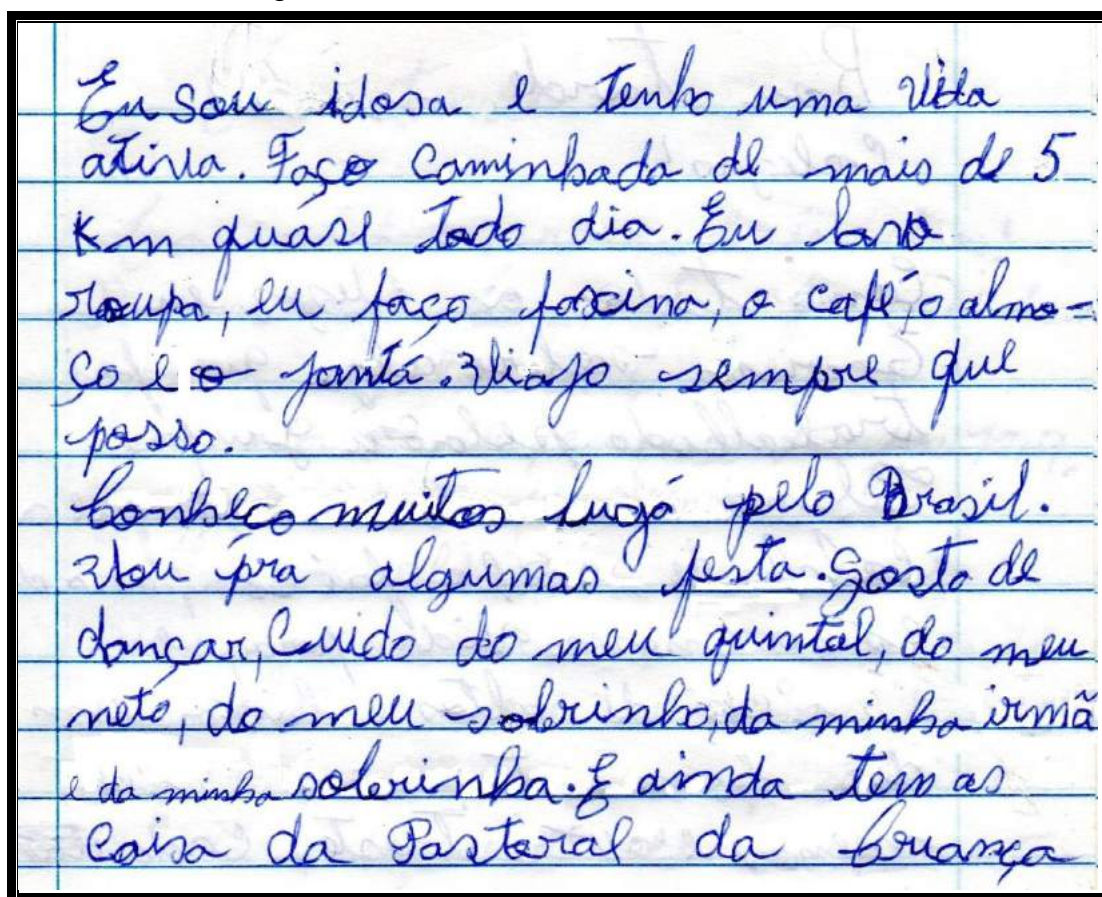 Eu sou idosa e tenho uma vida
ativa. Faço caminhada de mais de 5
Km quase todo dia. Eu lavo
roupa, eu faço faxina, o café, o almo=
ço e o jantá. Viajo sempre que
posso.
Conheço muitos lugá pelo Brasil.
Vou pra algumas festa. Gosto de
dançar, Cuido do meu quintal, do meu
neto, do meu sobrinho, da minha irmã
e da minha sobrinha. E ainda tem as
Coisa da Pastoral da Criança